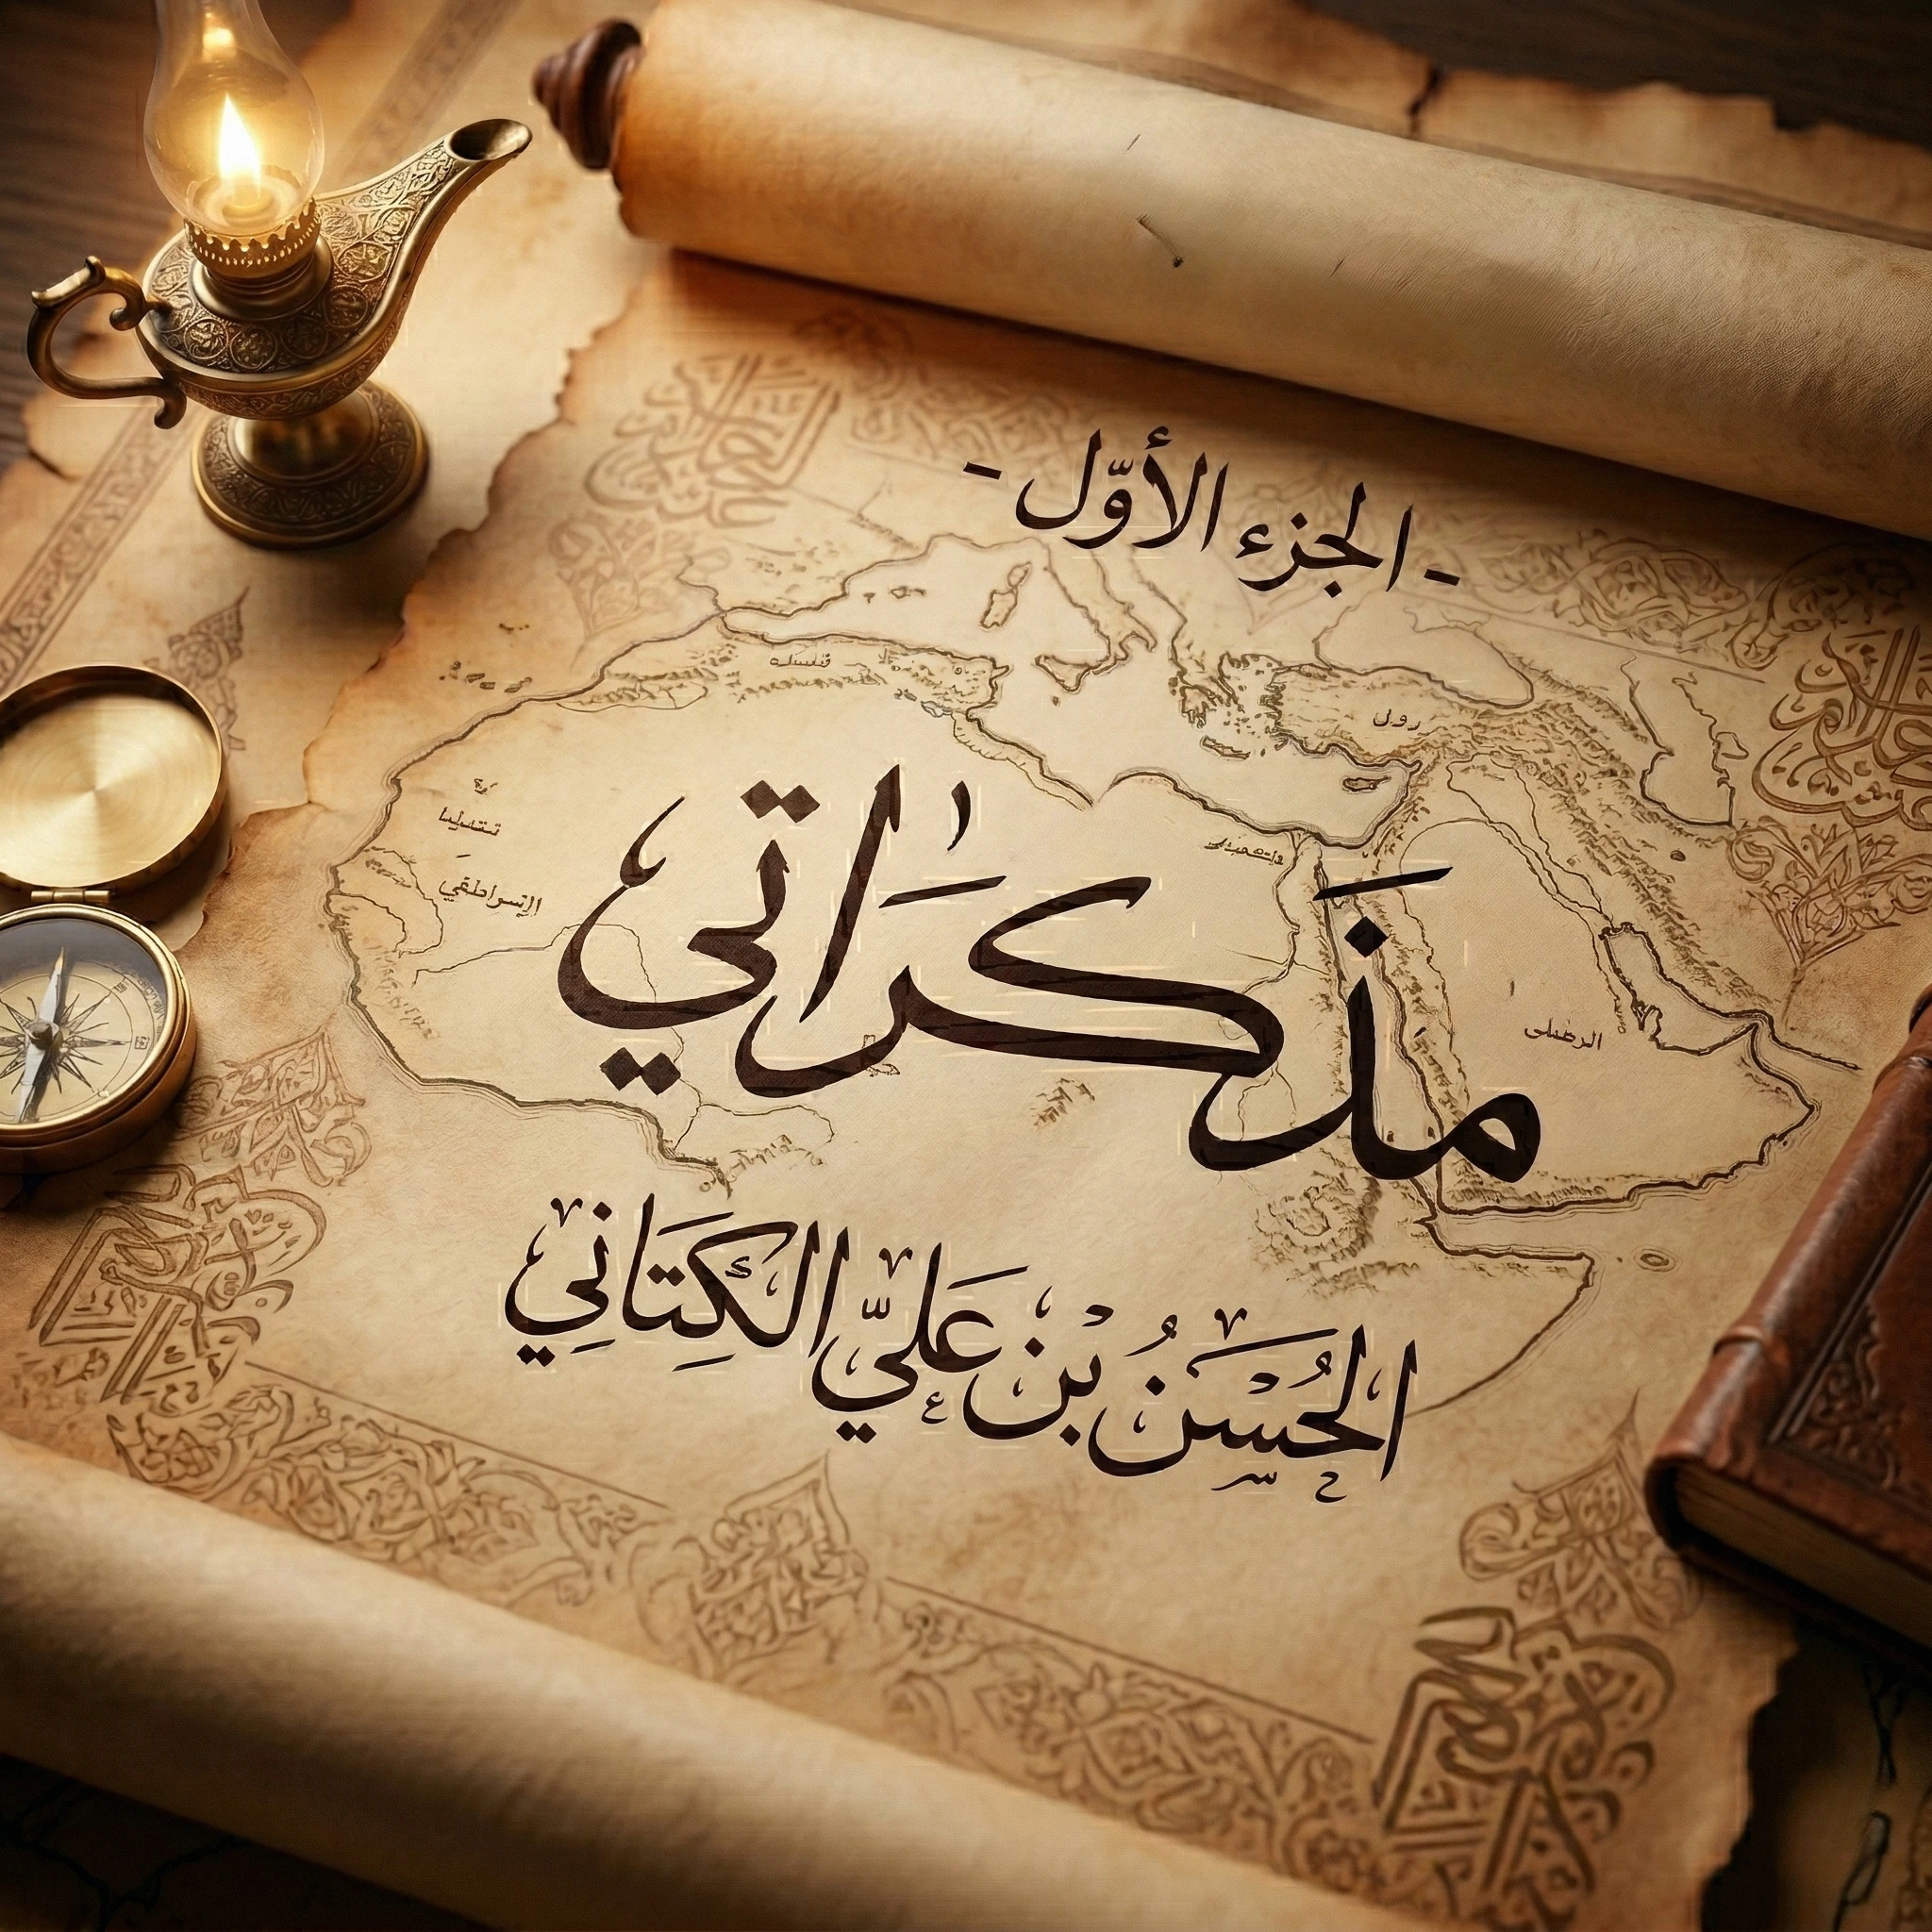 - الجزء الأوّل -
مذَكرَاتي
الحُسَنُ بْنُ عَليّ الكِتَانِي